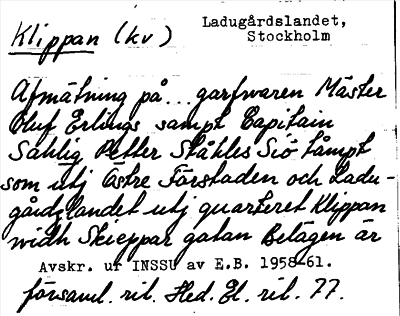 Klippan (kv)
Ladugårdslandet,
Stockholm
Afmätning på... garfwaren Mäster
Oluf Erlings sampt Capitain
Sahlig Petter Ståhles Siö tåmpt
som utj Östre Förstaden och Ladu-
gårdzlandet utj quarteret Klippan
widh Skieppar gatan Belägen är
Avskr. ur INSSU av E.B. 1958-61.
församl. ril. Hed. El. ril. 77.